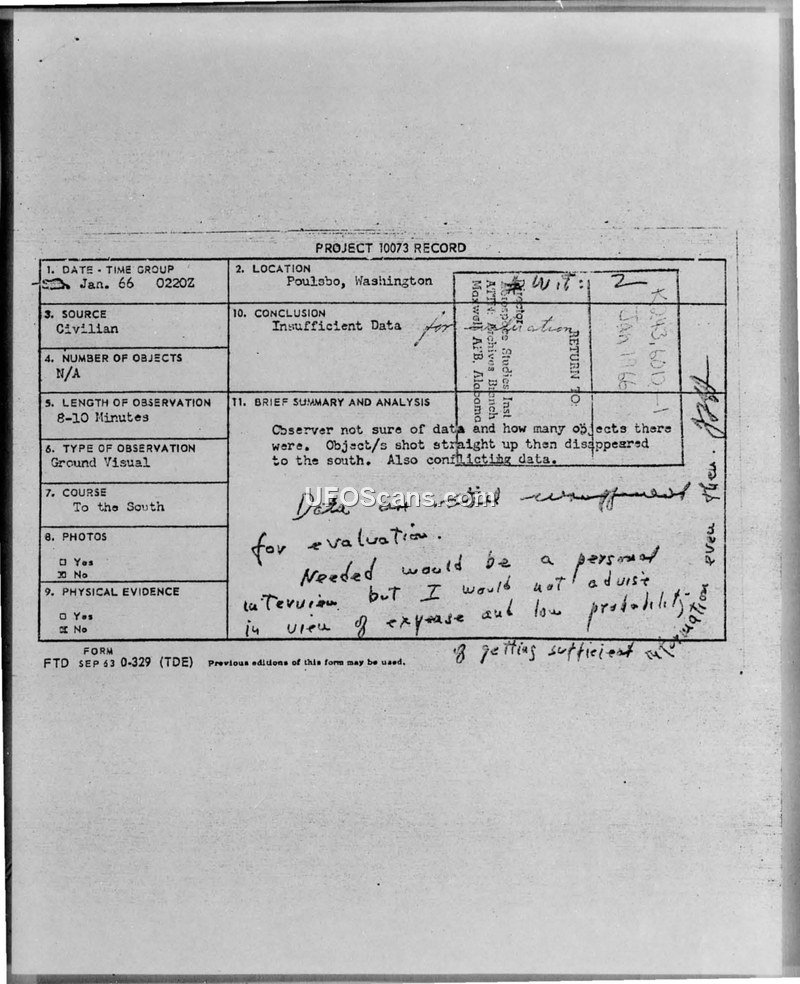 PROJECT 10073 RECORD
1. DATE - TIME GROUP
Jan. 66 0220Z
2. LOCATION
Poulsbo, Washington
# Wit: 2
3. SOURCE
Civilian
10. CONCLUSION
Insufficient Data for evaluation
4. NUMBER OF OBJECTS
N/A
5. LENGTH OF OBSERVATION
8-10 Minutes
11. BRIEF SUMMARY AND ANALYSIS
Observer not sure of data and how many objects there
were. Object/s shot straight up then disappeared
to the south. Also conflicting data.
6. TYPE OF OBSERVATION
Ground Visual
7. COURSE
To the South
8. PHOTOS
□ Yes
☒ No
9. PHYSICAL EVIDENCE
□ Yes
☒ No
Data
for evaluation.
Needed would be a personal
interview but I would not advise
in view of expense and low probability
of getting sufficient information even then.
RETURN TO:
Director
Aerospace Studies Inst
ATTN: Archives Branch
Maxwell AFB, Alabama
K243.6012-1
Jan 1966
UFOScans.com
FORM
FTD SEP 63 0-329 (TDE) Previous editions of this form may be used.